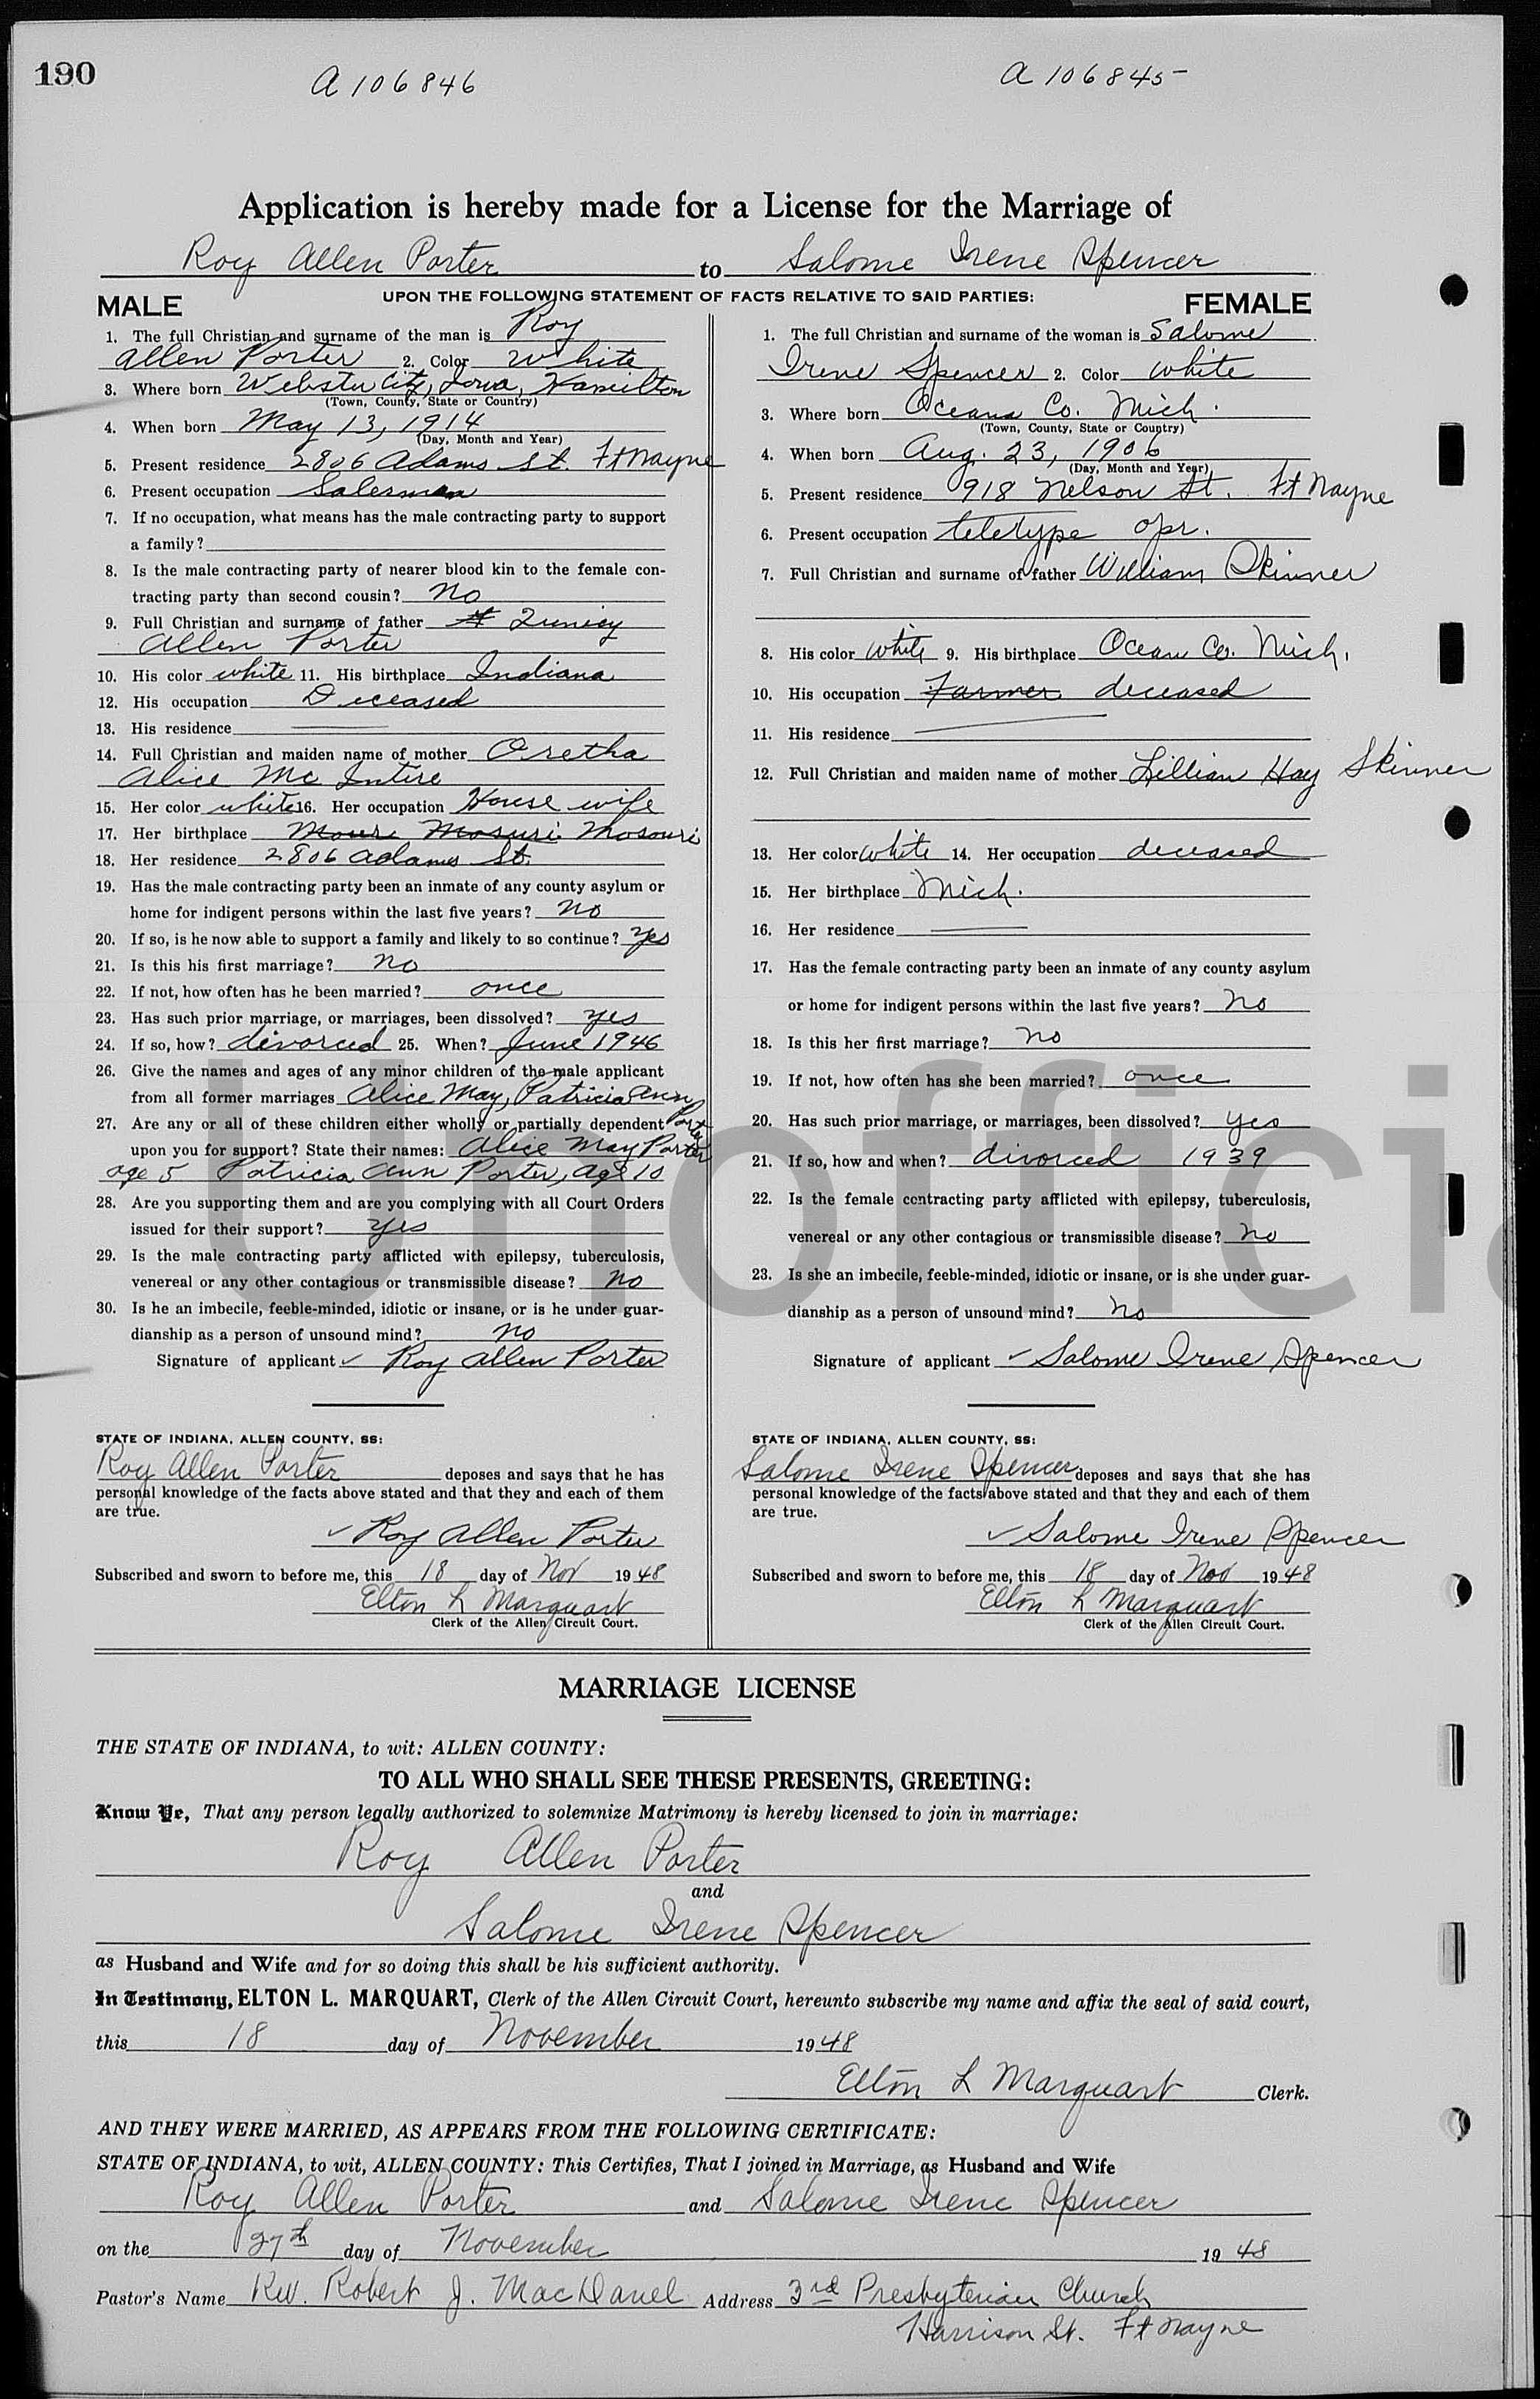 190
A 106846
A 106845
Application is hereby made for a License for the Marriage of
Roy Allen Porter to Salome Irene Spencer
UPON THE FOLLOWING STATEMENT OF FACTS RELATIVE TO SAID PARTIES:
MALE
1. The full Christian and surname of the man is Roy
Allen Porter 2. Color White
3. Where born Webster City, Iowa, Hamilton
(Town, County, State or Country)
4. When born May 13, 1914
(Day, Month and Year)
5. Present residence 2806 Adams St. Ft Wayne
6. Present occupation Salesman
7. If no occupation, what means has the male contracting party to support
a family?
8. Is the male contracting party of nearer blood kin to the female con-
tracting party than second cousin? No
9. Full Christian and surname of father
Allen Porter
10. His color white 11. His birthplace Indiana
12. His occupation Deceased
13. His residence
14. Full Christian and maiden name of mother Oretha
Alice Mc Intire
15. Her color white 16. Her occupation House wife
17. Her birthplace Mosouri
18. Her residence 2806 Adams St.
19. Has the male contracting party been an inmate of any county asylum or
home for indigent persons within the last five years? No
20. If so, is he now able to support a family and likely to so continue? yes
21. Is this his first marriage? no
22. If not, how often has he been married? once
23. Has such prior marriage, or marriages, been dissolved? yes
24. If so, how? divorced 25. When? June 1946
26. Give the names and ages of any minor children of the male applicant
from all former marriages Alice May, Patricia Ann Porter
27. Are any or all of these children either wholly or partially dependent
upon you for support? State their names: Alice May Porter
age 5 Patricia Ann Porter, age 10
28. Are you supporting them and are you complying with all Court Orders
issued for their support? yes
29. Is the male contracting party afflicted with epilepsy, tuberculosis,
venereal or any other contagious or transmissible disease? no
30. Is he an imbecile, feeble-minded, idiotic or insane, or is he under guar-
dianship as a person of unsound mind? no
Signature of applicant ✓ Roy Allen Porter
STATE OF INDIANA, ALLEN COUNTY, SS:
Roy Allen Porter deposes and says that he has
personal knowledge of the facts above stated and that they and each of them
are true.
✓ Roy Allen Porter
Subscribed and sworn to before me, this 18 day of Nov 1948
Elton L Marquart
Clerk of the Allen Circuit Court.
FEMALE
1. The full Christian and surname of the woman is Salome
Irene Spencer 2. Color white
3. Where born Oceana Co. Mich.
(Town, County, State or Country)
4. When born Aug. 23, 1906
(Day, Month and Year)
5. Present residence 918 Nelson St. Ft Wayne
6. Present occupation teletype opr.
7. Full Christian and surname of father William Skinner
8. His color white 9. His birthplace Ocean Co. Mich.
10. His occupation Farmer deceased
11. His residence
12. Full Christian and maiden name of mother Lillian Hay Skinner
13. Her color White 14. Her occupation deceased
15. Her birthplace Mich.
16. Her residence
17. Has the female contracting party been an inmate of any county asylum
or home for indigent persons within the last five years? No
18. Is this her first marriage? no
19. If not, how often has she been married? once
20. Has such prior marriage, or marriages, been dissolved? yes
21. If so, how and when? divorced 1939
22. Is the female contracting party afflicted with epilepsy, tuberculosis,
venereal or any other contagious or transmissible disease? No
23. Is she an imbecile, feeble-minded, idiotic or insane, or is she under guar-
dianship as a person of unsound mind? No
Signature of applicant ✓ Salome Irene Spencer
STATE OF INDIANA, ALLEN COUNTY, SS:
Salome Irene Spencer deposes and says that she has
personal knowledge of the facts above stated and that they and each of them
are true.
✓ Salome Irene Spencer
Subscribed and sworn to before me, this 18 day of Nov 1948
Elton L Marquart
Clerk of the Allen Circuit Court.
Unofficia
MARRIAGE LICENSE
THE STATE OF INDIANA, to wit: ALLEN COUNTY:
TO ALL WHO SHALL SEE THESE PRESENTS, GREETING:
Know Ye, That any person legally authorized to solemnize Matrimony is hereby licensed to join in marriage:
Roy Allen Porter
and
Salome Irene Spencer
as Husband and Wife and for so doing this shall be his sufficient authority.
In Testimony, ELTON L. MARQUART, Clerk of the Allen Circuit Court, hereunto subscribe my name and affix the seal of said court,
this 18 day of November 1948
Elton L Marquart Clerk.
AND THEY WERE MARRIED, AS APPEARS FROM THE FOLLOWING CERTIFICATE:
STATE OF INDIANA, to wit, ALLEN COUNTY: This Certifies, That I joined in Marriage, as Husband and Wife
Roy Allen Porter and Salome Irene Spencer
on the 27th day of November 1948
Pastor's Name Rev. Robert J. MacDanel Address 3rd Presbyterian Church
Harrison St. Ft Wayne